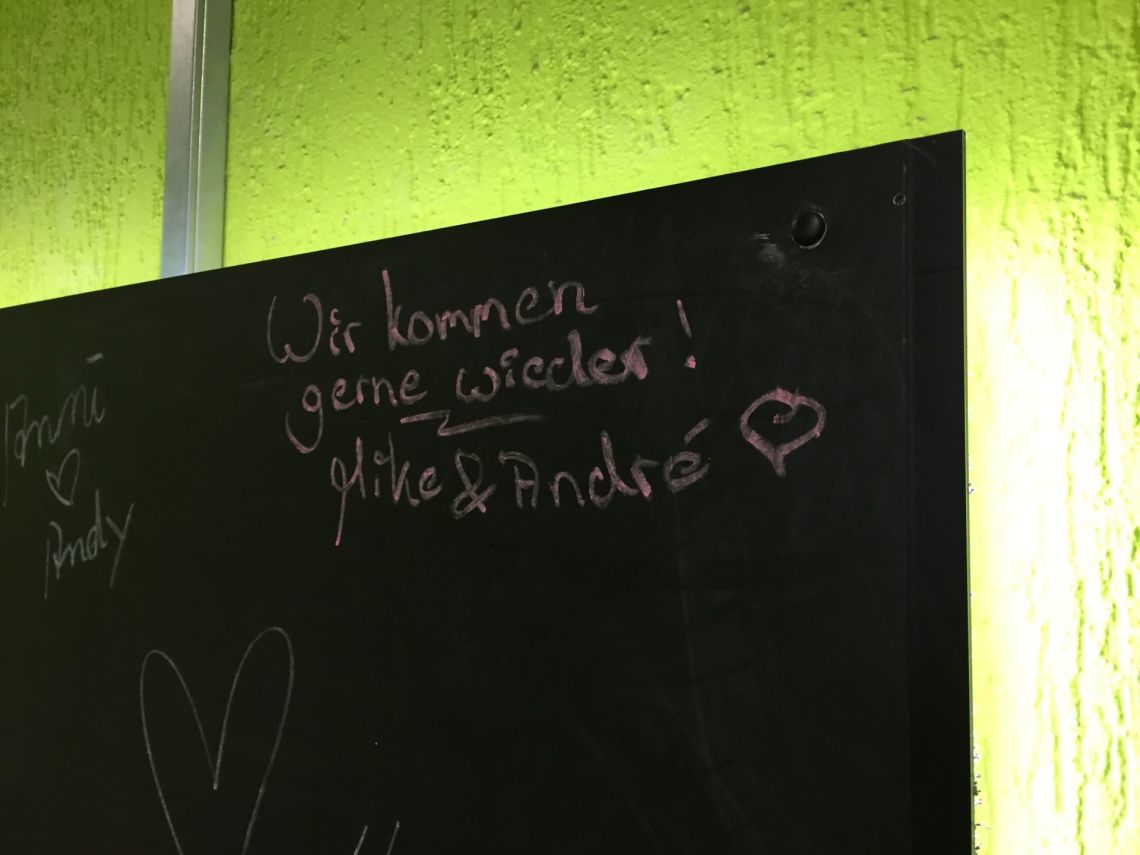 Wir kommen
gerne wieder!
Mike & André
Anni
Andy